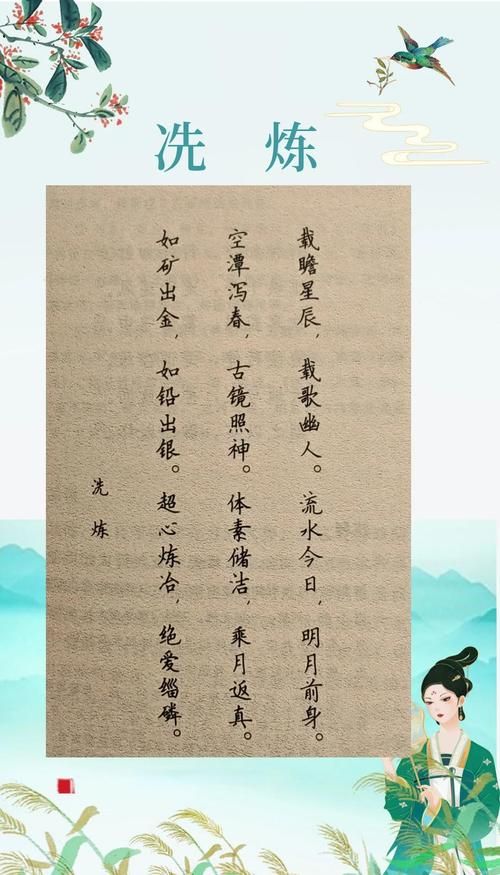 冼 炼
载瞻星辰，载歌幽人。流水今日，明月前身。
空潭泻春，古镜照神。体素储洁，乘月返真。
如矿出金，如铅出银。超心炼冶，绝爱缁磷。
洗炼